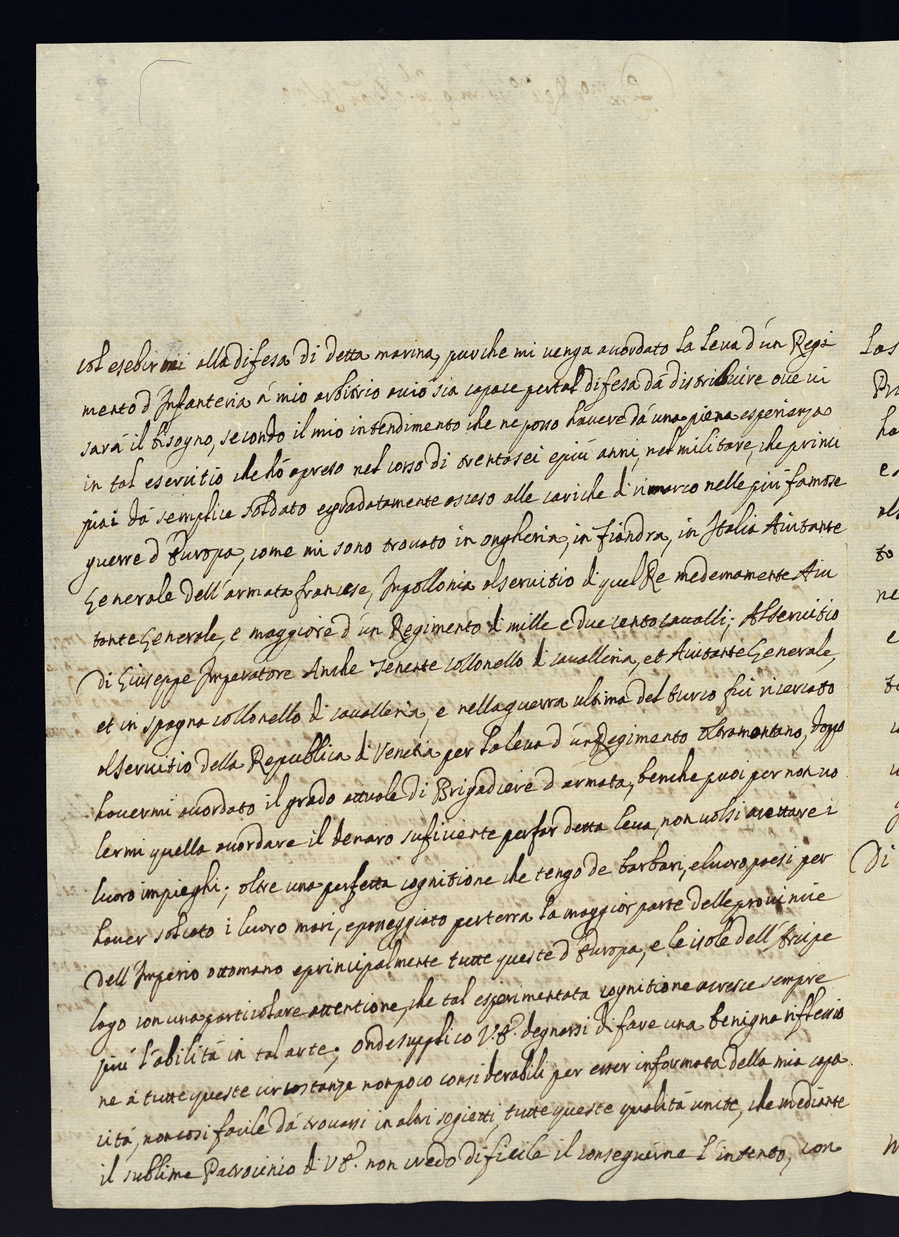 col esebirmi alla difesa di detta marina, purche mi venga acordato la leva d'un Regi
mento d'Infanteria à mio arbitrio acciò sia capace per tal difesa dà distribuire ove vi
sarà il bisogno, secondo il mio intendimento che ne posso havere dà una piena esperienza
in tal esercitio che hò apreso nel corso di trentasei e piú anni, nel militare, che princi
piai dà semplice soldato e gradatamente asceso alle cariche di rimarco nelle più famose
guerre d'Europa, come mi sono trovato in ongheria, in fiandra, in Italia Aiutante
Generale dell'armata francese, In pollonia al servitio di quel Re medemamente Aiu
tante Generale, e maggiore d'un Regimento di mille e due cento cavalli; Al servitio
di Giuseppe Imperatore Anche Tenente collonello di cavalleria, et Aiutante Generale,
et in spagna collonello di cavalleria, e nella guerra ultima del turco fui ricercato
al servitio della Republica di Venetia per la leva d'un Regimento oltramontano, doppo
havermi acordato il grado attuale di Brigadiere d'armata, benche puoi per non vo
lermi quella acordare il denaro suficiente per far detta leva, non volsi accettare i
luoro impieghi; oltre una perfetta cognitione che tengo de barbari, e luoro paesi per
haver solcato i luoro mari, e paneggiato per terra la maggior parte delle provincie
dell'Imperio ottomano e principalmente tutte queste d'Europa, e le isole dell'Arcipe
lago con una particolare attentione, che tal esperimentata cognitione accresce sempre
piú l'abilità in tal arte; onde supplico V.E. degnarsi di fare una benigna riflessio
ne à tutte queste circostanze non poco considerabili per esser informata della mia capa
cità, non così facile dà trovarsi in altri sogietti, tutte queste qualità unite, che mediante
il sublime Patrocinio di V.E. non credo dificile il conseguirne l'intento, con
Di